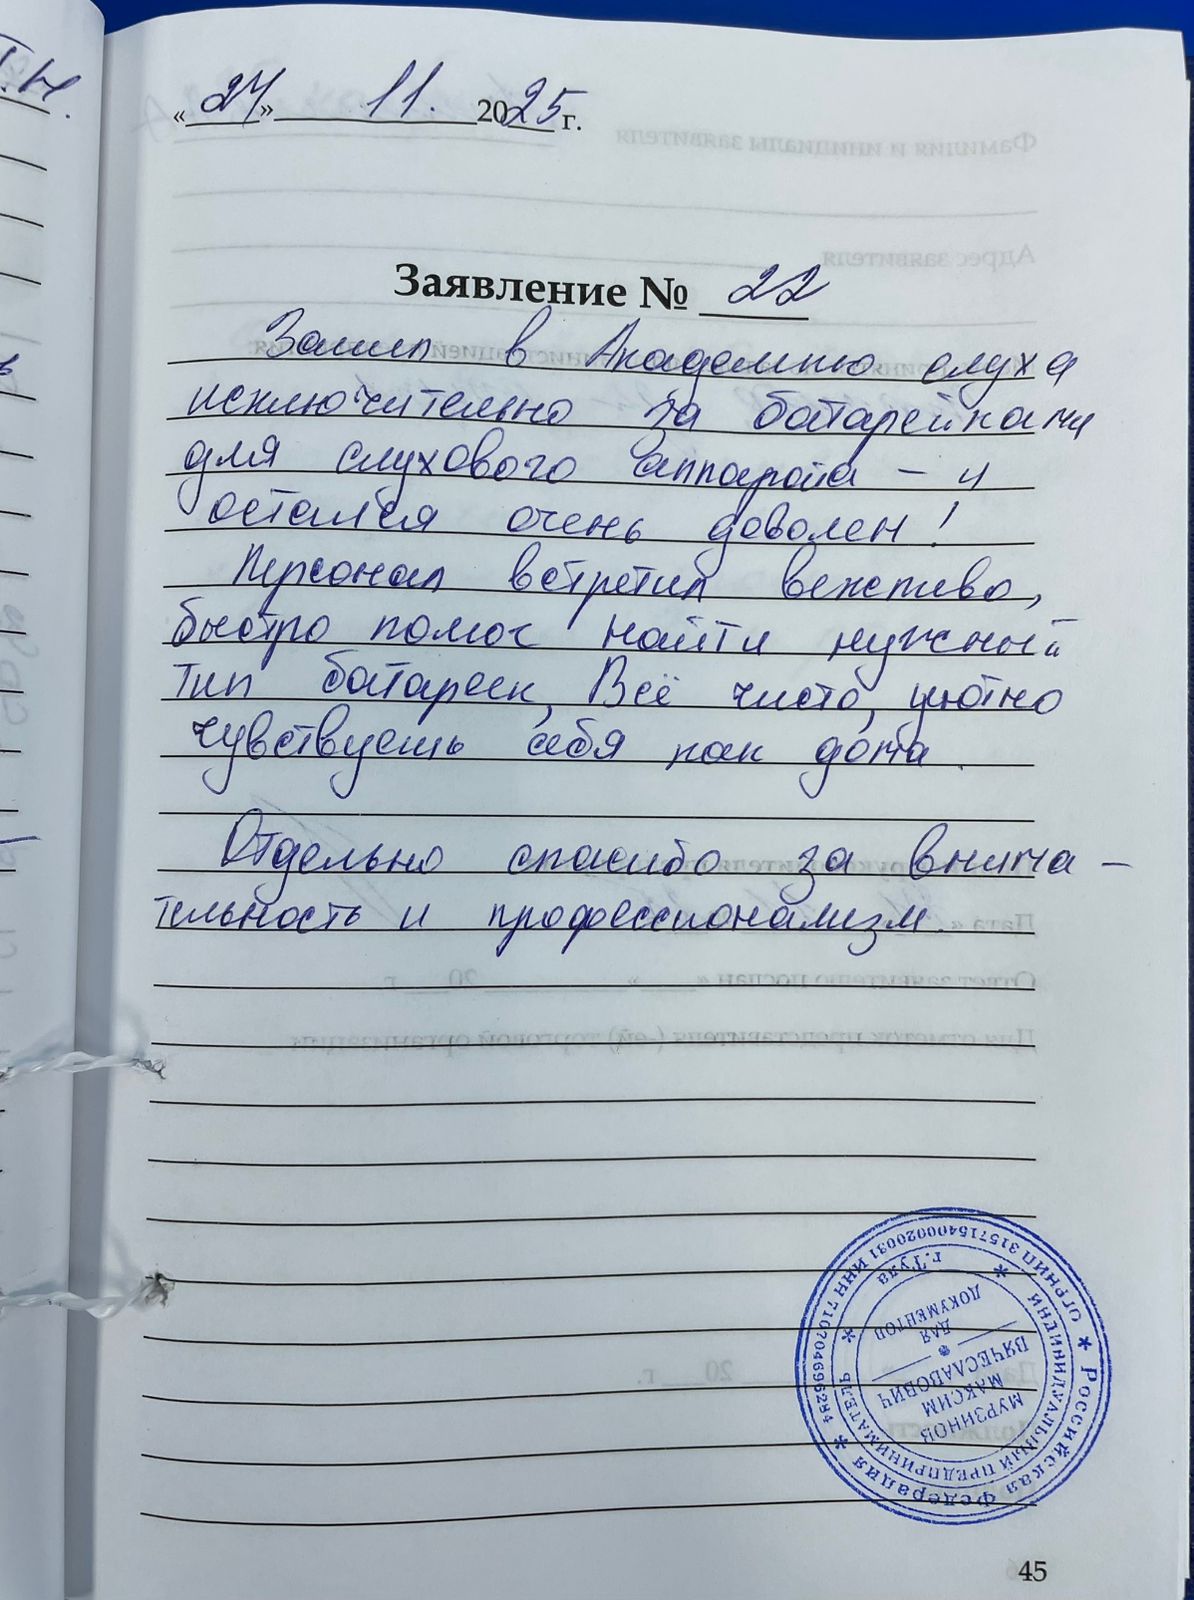 «24» 11. 2025 г.
Заявление № 22
Зашел в Академию слуха
исключительно за батарейками
для слухового аппарата – и
остался очень доволен!
Персонал встретил вежливо,
быстро помог найти нужный
тип батареек, Всё чисто, уютно
чувствуешь себя как дома.
Отдельно спасибо за внима –
тельность и профессионализм.
* Российская Федерация *
ОГРНИП 315715400020031 ИНН 710704696284
ИНДИВИДУАЛЬНЫЙ ПРЕДПРИНИМАТЕЛЬ
* г.Тула *
МУРЗИНОВ
МАКСИМ
ВЯЧЕСЛАВОВИЧ
ДЛЯ
ДОКУМЕНТОВ
45